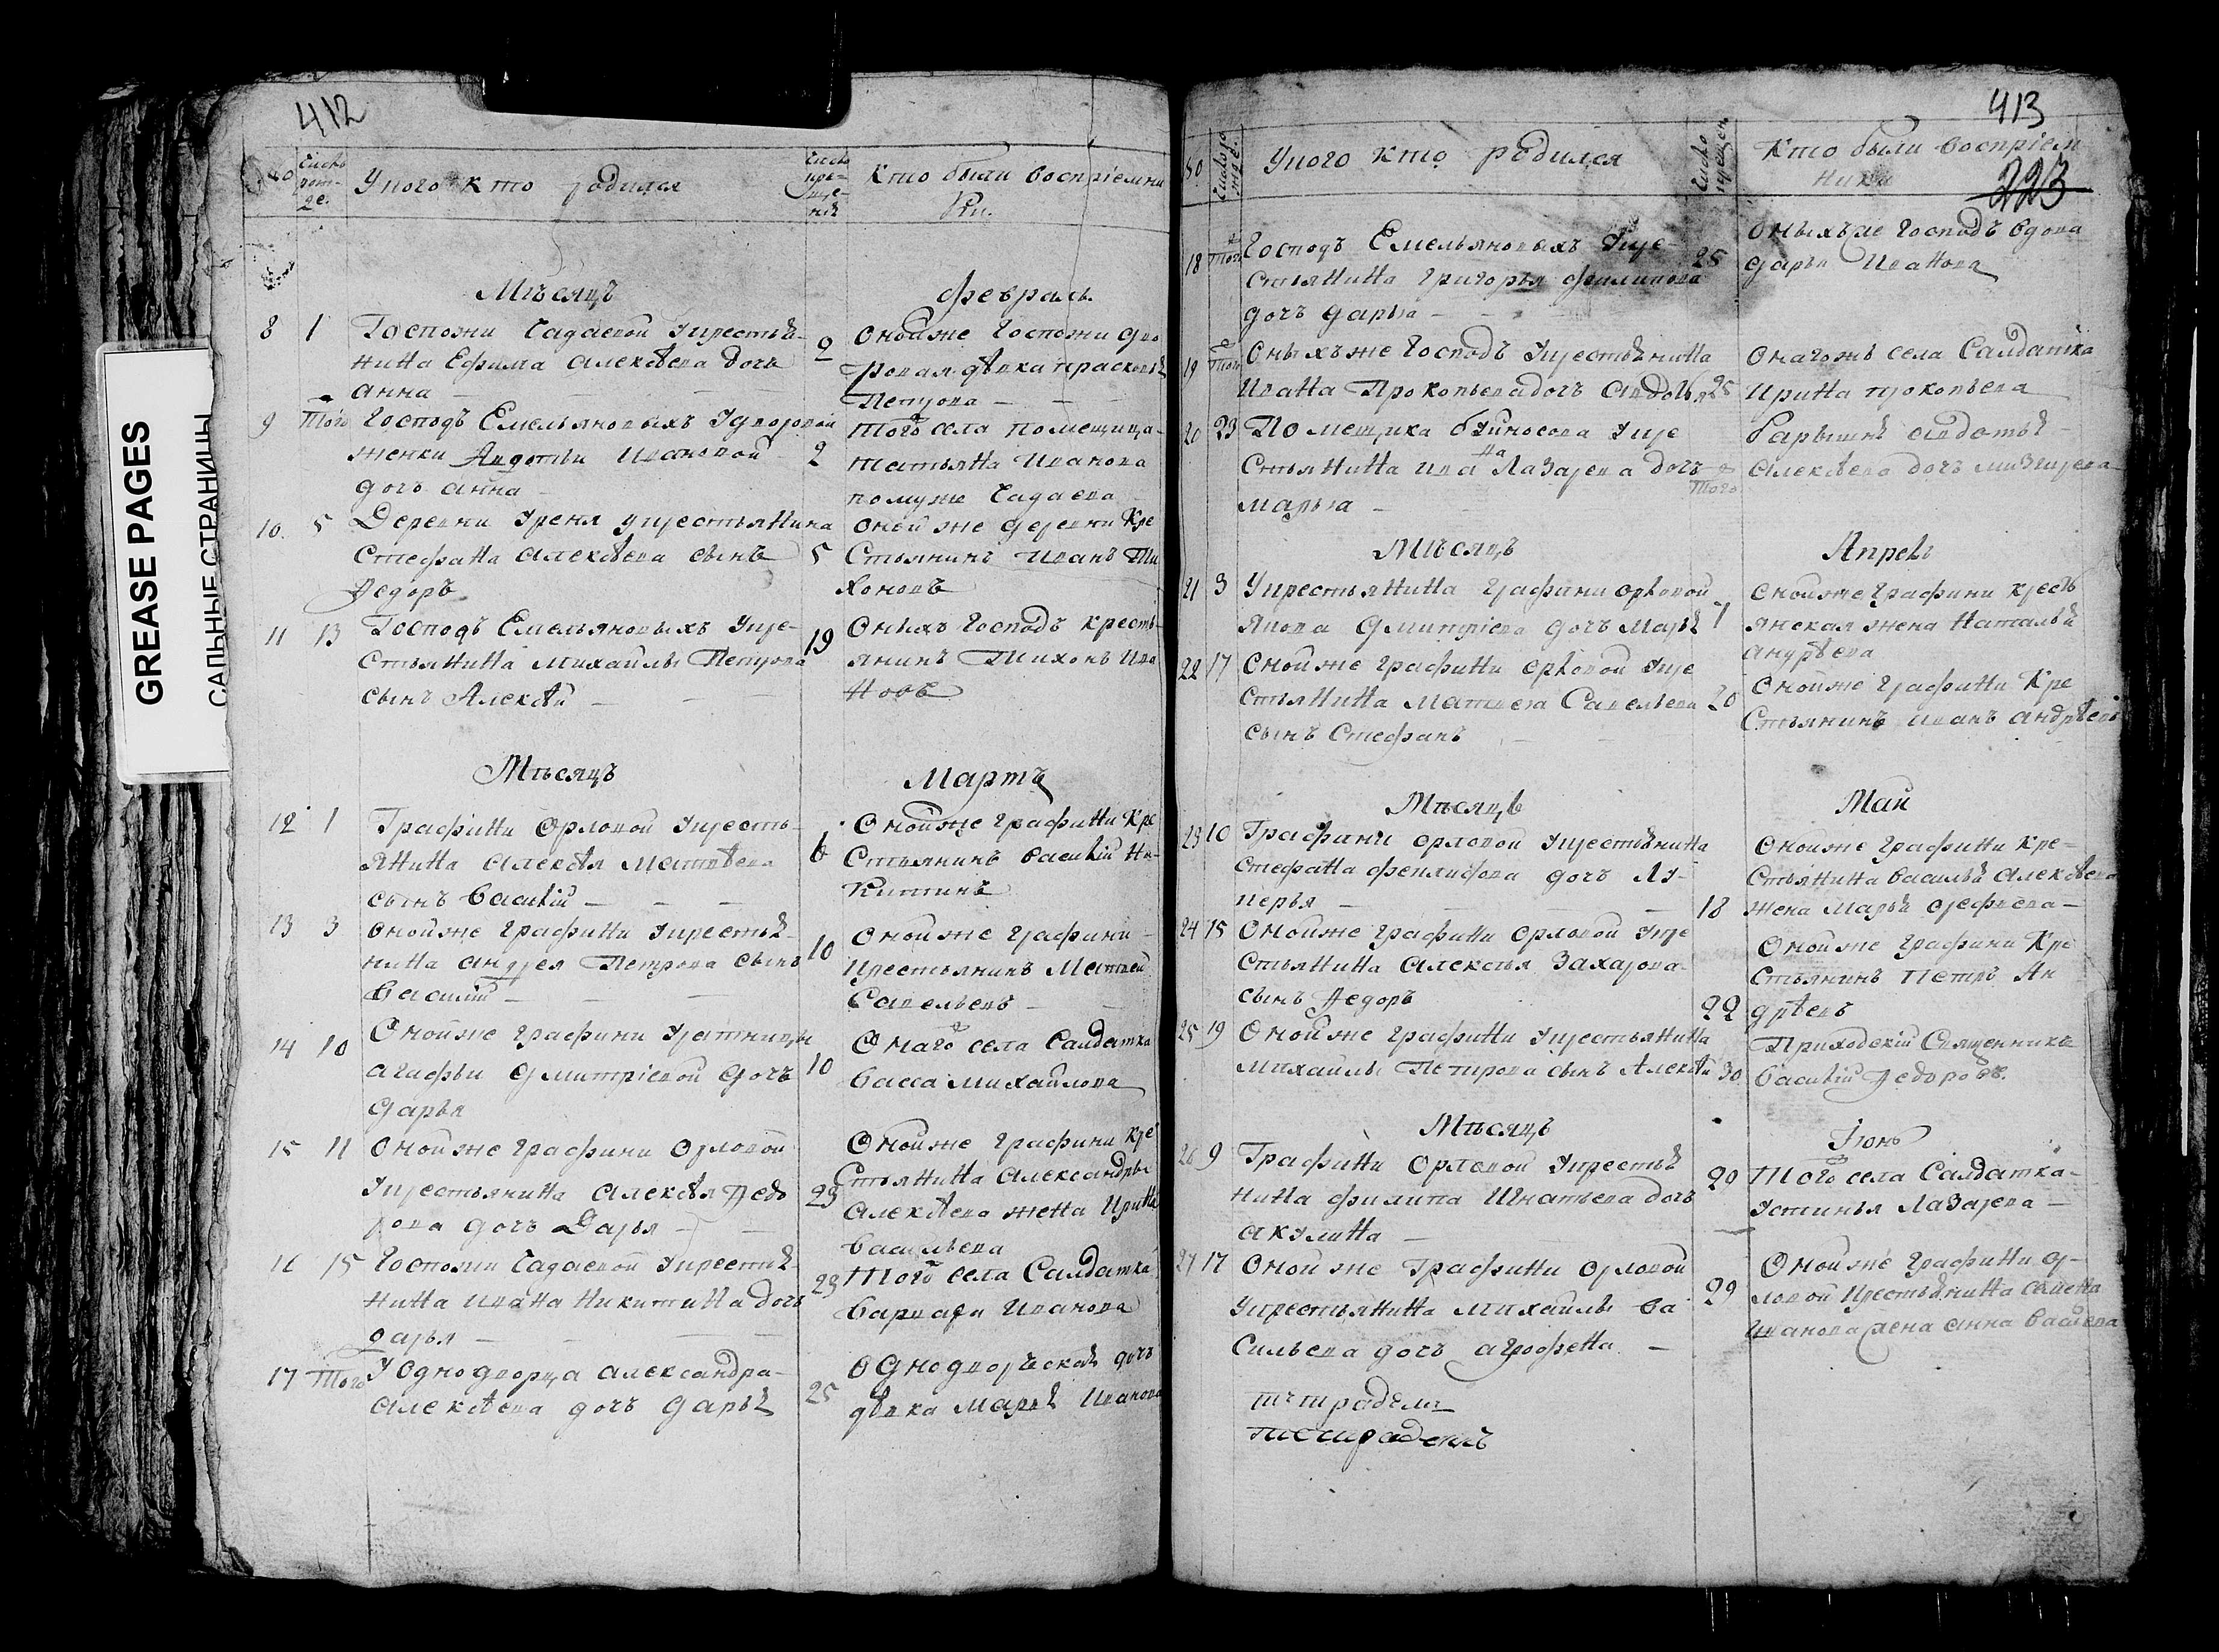 GREASE PAGES
САЛЬНЫЕ СТРАНИЦЫ
412
Число рож-де.
Укого кто родился
Число кре-ще-ния
Кто были воспріемни
ки.
Мѣсяцъ Февраль
8 1 Госпожи Чадаевой укрестья-
нина Ефима Алексѣева дочь
анна —
2 Оной же госпожи дво
ровая дѣвка прасковья
Петрова —
9 Того Господъ Емельяновыхъ удворовой
женки Авдотьи Ивановой
дочь анна
2 Того села помещица
татьяна Иванова
помуже Чадаева
10. 5 Деревни Уреня укрестьянина
Стефана алексѣева сынъ
Ѳедоръ
5 Оной же деревни Кре
стьянинъ Иванъ Ти
хоновъ
11 13 Господъ Емельяновыхъ укре-
стьянина михайлы Петрова
сынъ Алексѣй —
19 Оныхъ господъ кресть-
янинъ Тихонъ Ива
новъ
Мѣсяцъ Мартъ
12 1 Графини Орловой укресть-
янина алексѣя Матвѣева
сынъ василій —
6 Оной же графини Кре
стьянинъ василій Ни-
китинъ
13 3 Оной же графини укрестья-
нина андрея Петрова сынъ
василій —
10 Оной же графини
крестьянинъ Матвей
Савельевъ —
14 10 Оной же графини
агафьи Дмитріевой дочь
Дарья
10 Онаго села Салдатка
васса михайлова
15 11 Оной же графини Орловой
укрестьянина алексѣя Ѳедо
рова дочь Дарья —
23 Оной же графини кре
стьянина александры
алексѣева жена Ирина
васильева
16 15 Госпожи Чадаевой укрестья-
нина ивана никитина дочь
дарья —
23 Того села Салдатка
варвара Иванова
17 Того У Однодворца александра
алексѣева дочь Дарья
25 Однодворческая дочь
дѣвка Марья Иванова
413
223
Число рожде.
Укого кто родился
Число крещен.
Кто были воспріем
ники
18 Того Господъ Емельяновыхъ укре-
стьянина григорья филипова
дочь дарья —
25 Оныхъ же господъ вдова
дарья Иванова
19 Того Оныхъ же господъ укрестьянина
Ивана Прокопьева дочь авдотья
25 Онагожъ села Салдатка
Ирина прокопьева
20 23 Помещика укре
стьянина ивана Лазарева дочь
марья —
Того Барышня авдотья
алексѣева дочь
Мѣсяцъ Апрель
21 3 Укрестьянина графини орловой
Якова Дмитріева дочь марья
7 Оной же графини кресть
янская жена наталья
андрѣева
22 17 Оной же графини орловой укре
стьянина матвея Савельева
сынъ Стефанъ
20 Оной же графини Кре
стьянинъ иванъ андрѣевъ
Мѣсяцъ Май
23 10 Графини орловой укрестьянина
Стефана дочь Лу-
керья —
18 Оной же графини кре-
стьянина василья алексѣева
жена марья
24 15 Оной же графини орловой укре
стьянина алексѣя Захарова
сынъ Ѳедоръ
22 Оной же графини Кре
стьянинъ Петръ Ан
дрѣевъ
25 19 Оной же графини укрестьянина
михайлы Петрова сынъ алексѣй
30 Приходскій Священникъ
василій Ѳедоровъ.
Мѣсяцъ Іюнь
26 9 Графини Орловой укрестья
нина филипа Игнатьева дочь
акулина —
20 Того села Салдатка
устинья Лазарева —
27 17 Оной же Графини орловой
укрестьянина михайлы ва
сильева дочь агрофена —
29 Оной же графини ор-
ловой крестьянина
Иванова жена анна